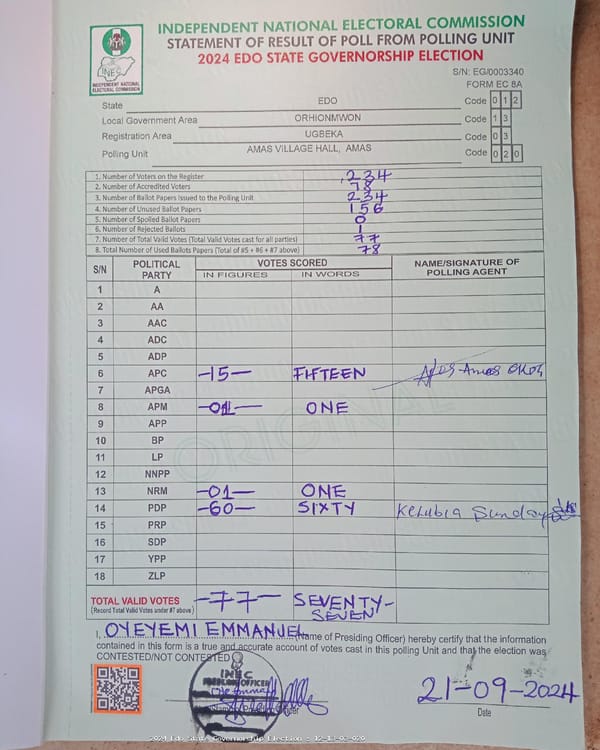 INDEPENDENT NATIONAL ELECTORAL COMMISSION
STATEMENT OF RESULT OF POLL FROM POLLING UNIT
2024 EDO STATE GOVERNORSHIP ELECTION
INEC
INDEPENDENT NATIONAL
ELECTORAL COMMISSION
S/N: EG/0003340
FORM EC 8A
State EDO Code 0 1 2
Local Government Area ORHIONMWON Code 1 3
Registration Area UGBEKA Code 0 3
Polling Unit AMAS VILLAGE HALL, AMAS Code 0 2 0
1. Number of Voters on the Register 234
2. Number of Accredited Voters 78
3. Number of Ballot Papers Issued to the Polling Unit 234
4. Number of Unused Ballot Papers 156
5. Number of Spoiled Ballot Papers 0
6. Number of Rejected Ballots 1
7. Number of Total Valid Votes (Total Valid Votes cast for all parties) 77
8. Total Number of Used Ballots Papers (Total of #5 + #6 + #7 above) 78
S/N POLITICAL PARTY VOTES SCORED NAME/SIGNATURE OF POLLING AGENT
IN FIGURES IN WORDS
1 A
2 AA
3 AAC
4 ADC
5 ADP
6 APC -15- FIFTEEN
7 APGA
8 APM -01- ONE
9 APP
10 BP
11 LP
12 NNPP
13 NRM -01- ONE
14 PDP -60- SIXTY Sunday
15 PRP
16 SDP
17 YPP
18 ZLP
ORIGINAL
TOTAL VALID VOTES -77- SEVENTY-
(Record Total Valid Votes under #7 above) SEVEN
I, OYEYEMI EMMANUEL (Name of Presiding Officer) hereby certify that the information
contained in this form is a true and accurate account of votes cast in this polling Unit and that the election was
CONTESTED/NOT CONTESTED
INEC
21-09-2024
Date
2024 Edo State Governorship Election - 12-13-03-020